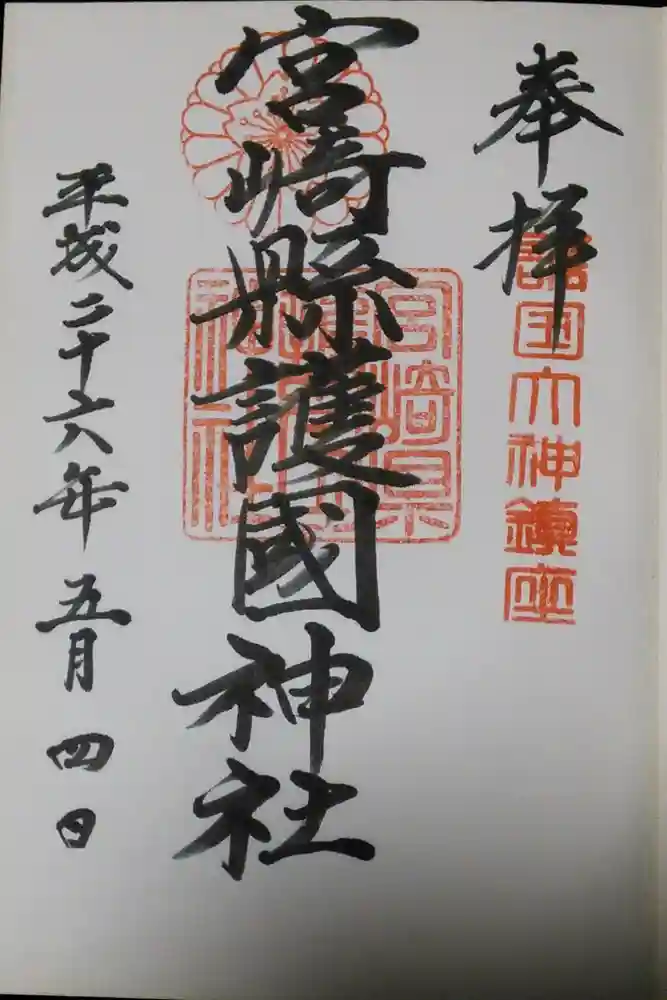 奉拝
護国大神鎮座
宮崎縣護國神社
宮崎県護国神社
平成二十六年五月四日